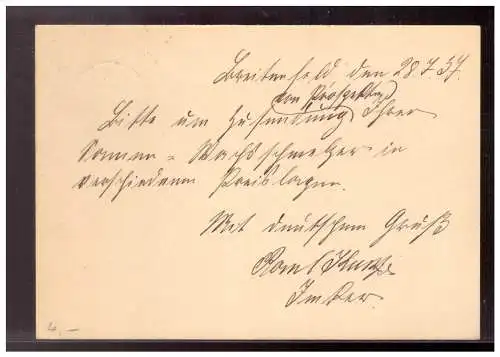 Breitenfeld den 28.7.37.
von Prospekten
Bitte um Zusendung Ihrer
Sonnen = Wachsschmelzer in
verschiedenen Preislagen.
Mit deutschem Gruß
Imker.
4,-